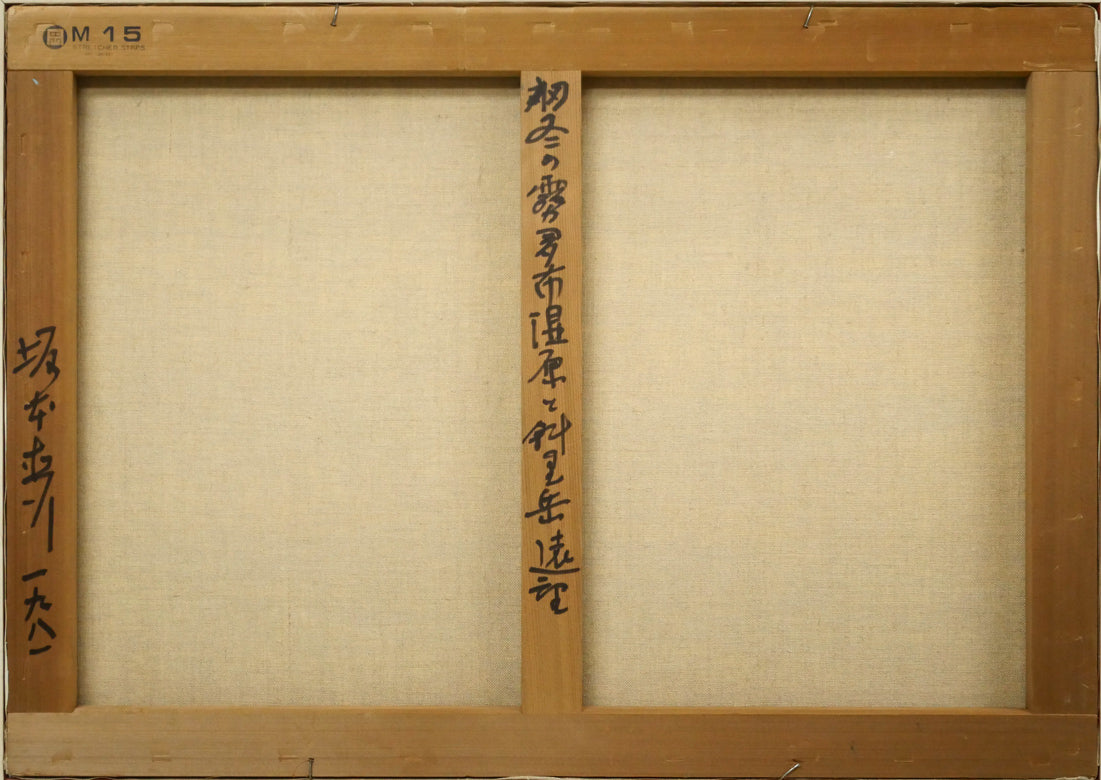 M 15
STRETCHER STRIPS
初冬の霧多布湿原と斜里岳遠望
坂本直行 一九八一